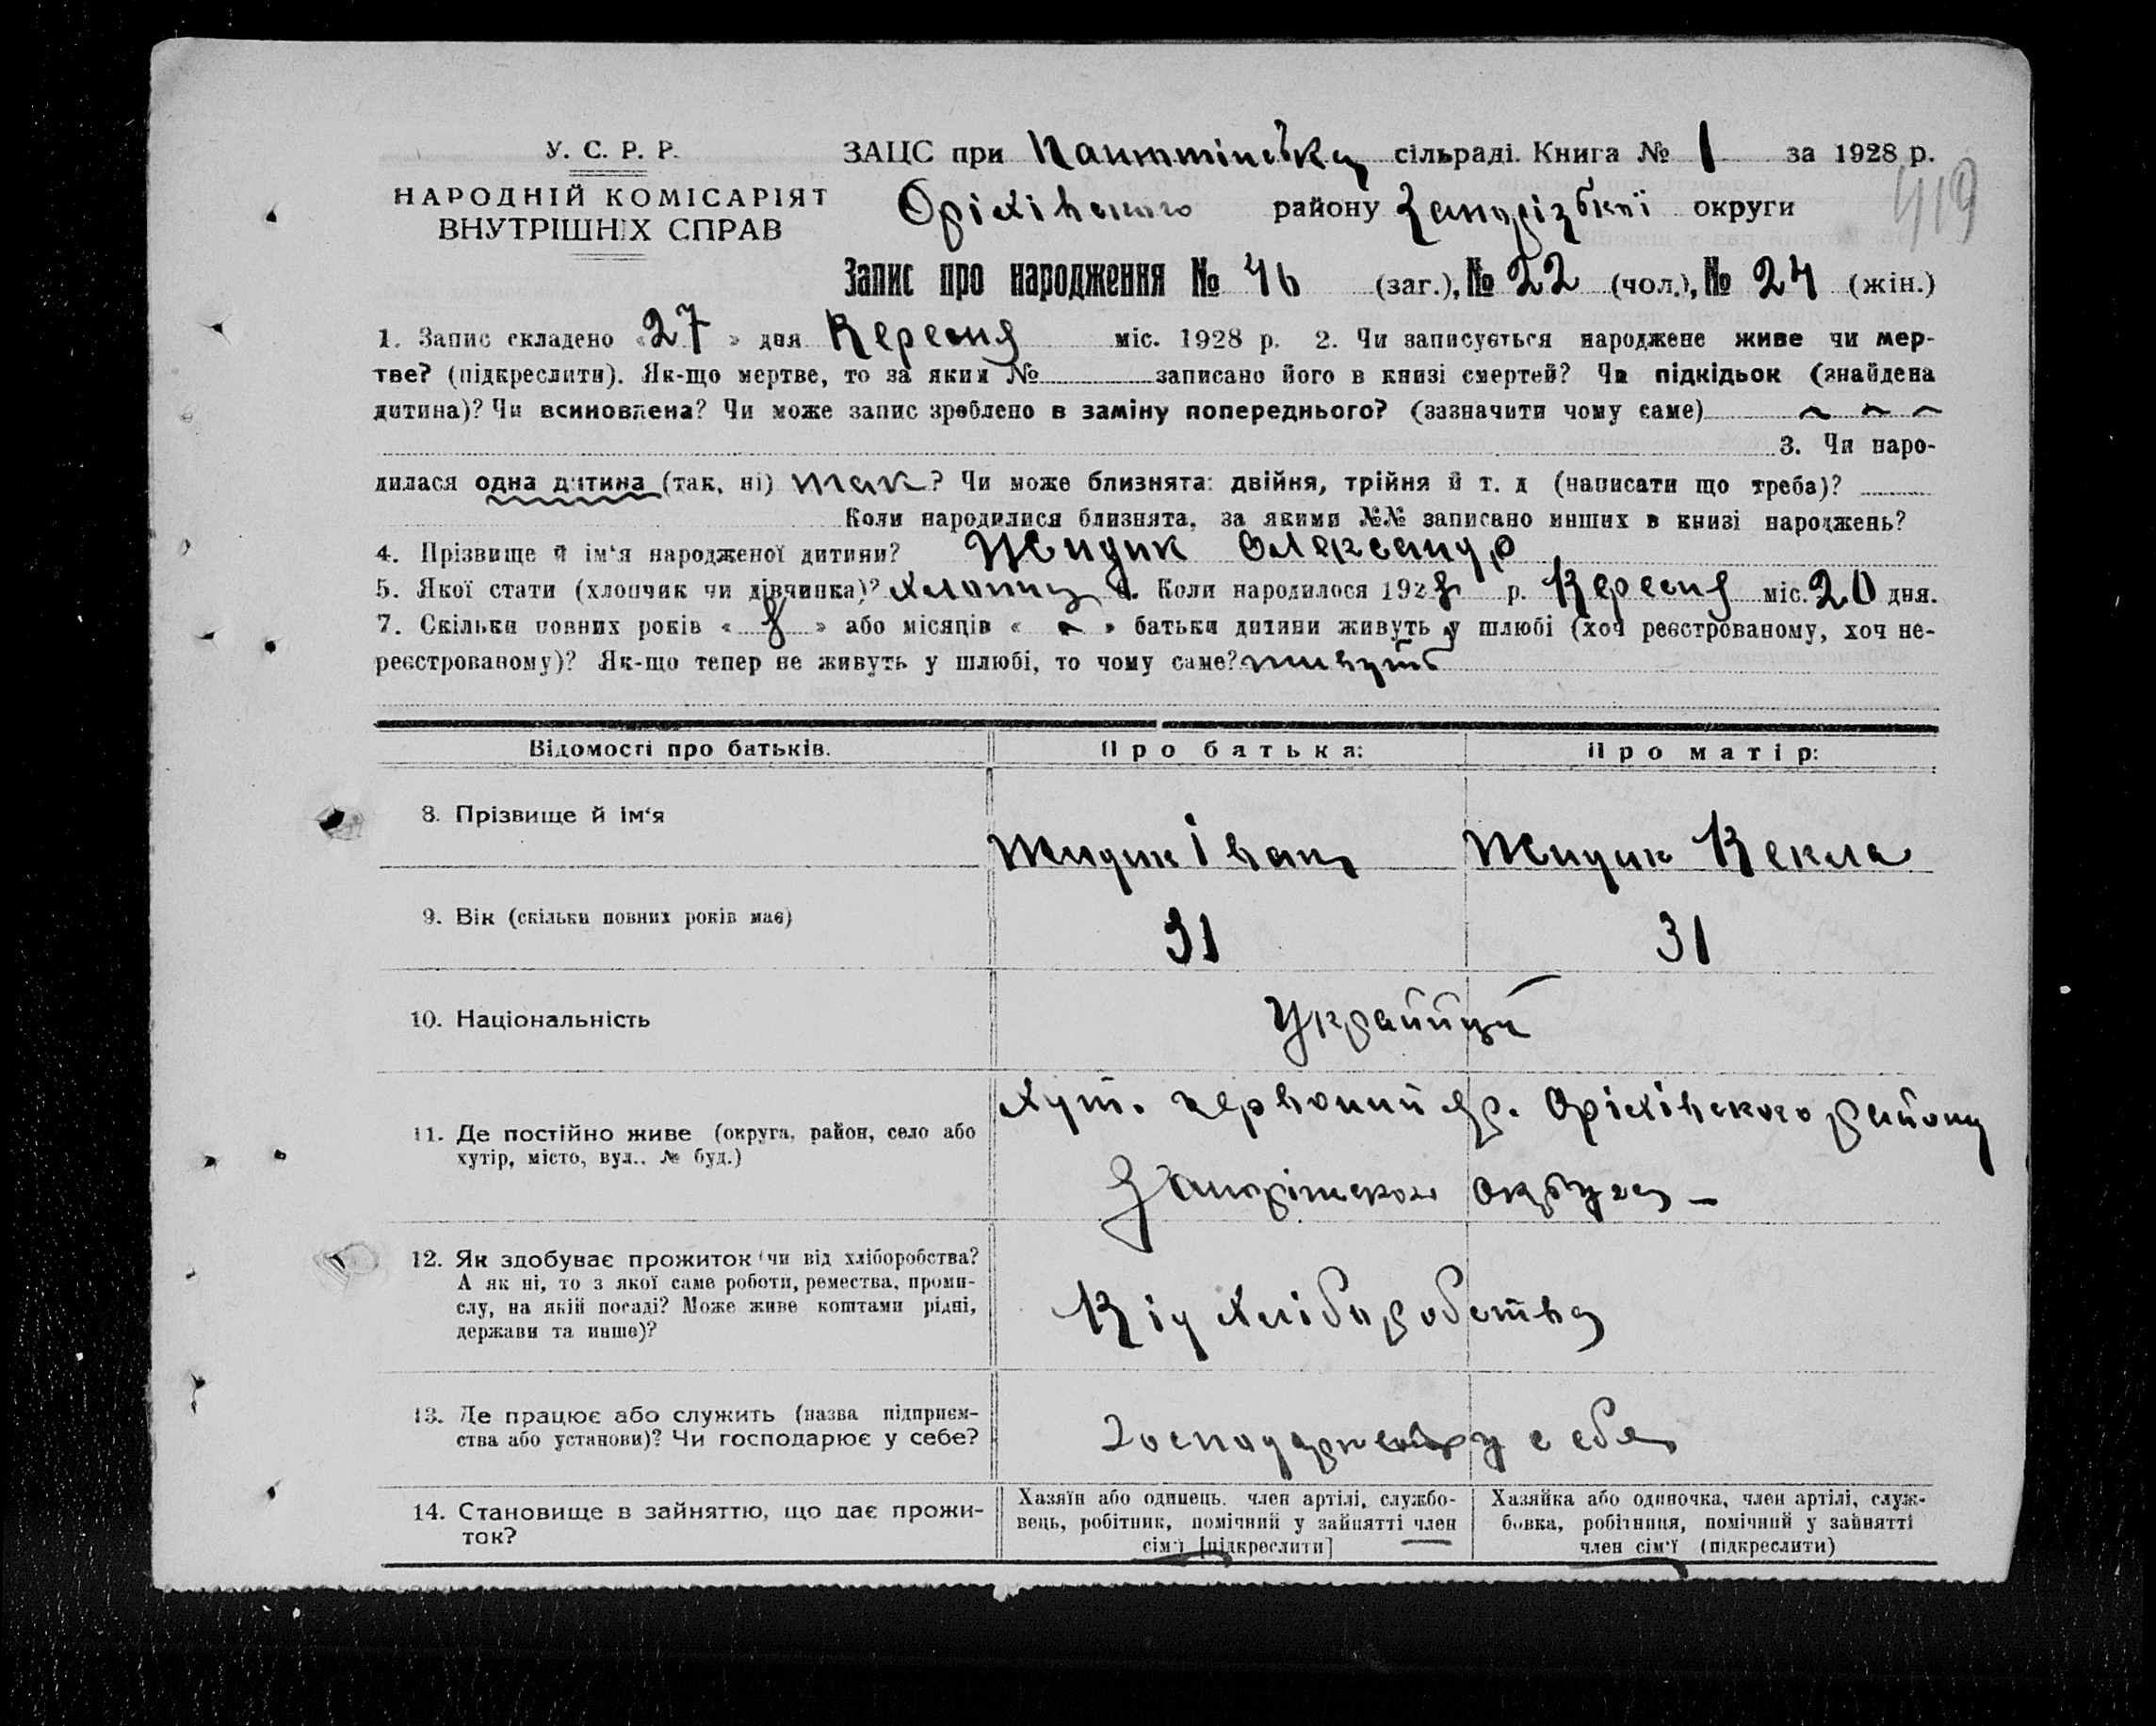 У. С. Р. Р.
НАРОДНІЙ КОМІСАРІЯТ
ВНУТРІШНІХ СПРАВ
ЗАЦС при сільраді. Книга № 1 за 1928 р.
419
Оріхівського району Запорізької округи
Запис про народження № 46 (заг.), № 22 (чол.), № 24 (жін.)
1. Запис складено «27» дня Вересня міс. 1928 р. 2. Чи записується народжене живе чи мер-
тве? (підкреслити). Як-що мертве, то за яким № записано його в книзі смертей? Чи підкідьок (знайдена
дитина)? Чи всиновлена? Чи може запис зроблено в заміну попереднього? (зазначити чому саме) ~ ~ ~
3. Чи наро-
дилася одна дитина (так, ні) так? Чи може близнята: двійня, трійня й т. д (написати що треба)?
Коли народилися близнята, за якими №№ записано инших в книзі народжень?
4. Прізвище й ім‘я народженої дитини? Жидик Олександр
5. Якої стати (хлопчик чи дівчинка)? 6. Коли народилося 1928 р. Вересня міс. 20 дня.
7. Скільки повних років « 8 » або місяців « ~ » батьки дитини живуть у шлюбі (хоч реєстрованому, хоч не-
реєстрованому)? Як-що тепер не живуть у шлюбі, то чому саме? живуть
Відомості про батьків.
Про батька:
Про матір:
8. Прізвище й ім‘я
Жидик Іван
Жидик Векла
9. Вік (скільки повних років має)
31
31
10. Національність
Українці
11. Де постійно живе (округа, район, село або
хутір, місто, вул., № буд.)
Хут. червоний Яр. Оріхівского району
округи –
12. Як здобуває прожиток (чи від хліборобства?
А як ні, то з якої саме роботи, ремества, проми-
слу, на якій посаді? Може живе коштами рідні,
держави та инше)?
Від Хліборобства
13. Де працює або служить (назва підприєм-
ства або установи)? Чи господарює у себе?
у себе
14. Становище в зайняттю, що дає прожи-
ток?
Хазяїн або одинець, член артілі, службо-
вець, робітник, помічний у зайнятті член
сім‘ї [підкреслити]
Хазяйка або одиночка, член артілі, служ-
бовка, робітниця, помічний у зайнятті
член сім‘ї (підкреслити)